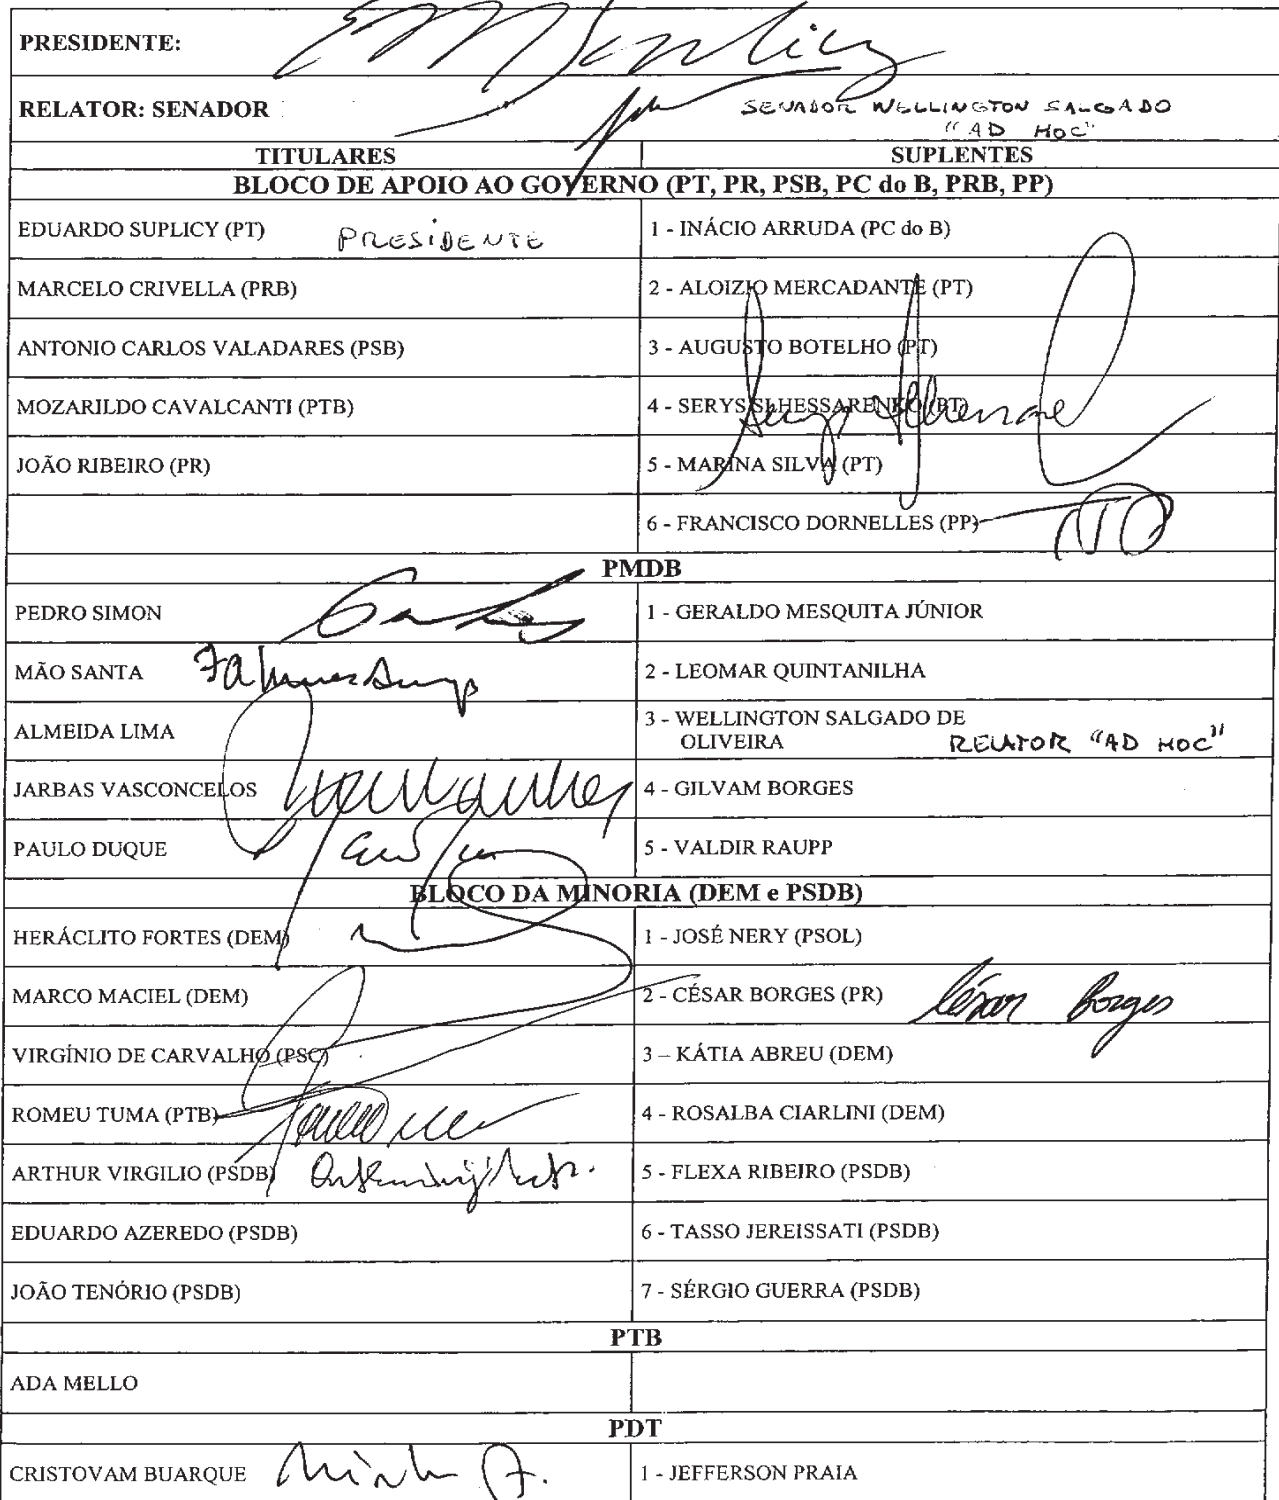 PRESIDENTE:
RELATOR: SENADOR SENADOR WELLINGTON SALGADO
"AD HOC"
TITULARES SUPLENTES
BLOCO DE APOIO AO GOVERNO (PT, PR, PSB, PC do B, PRB, PP)
EDUARDO SUPLICY (PT) PRESIDENTE 1 - INÁCIO ARRUDA (PC do B)
MARCELO CRIVELLA (PRB) 2 - ALOIZIO MERCADANTE (PT)
ANTONIO CARLOS VALADARES (PSB) 3 - AUGUSTO BOTELHO (PT)
MOZARILDO CAVALCANTI (PTB) 4 - SERYS SLHESSARENKO (PT)
JOÃO RIBEIRO (PR) 5 - MARINA SILVA (PT)
6 - FRANCISCO DORNELLES (PP)
PMDB
PEDRO SIMON 1 - GERALDO MESQUITA JÚNIOR
MÃO SANTA 2 - LEOMAR QUINTANILHA
ALMEIDA LIMA 3 - WELLINGTON SALGADO DE
OLIVEIRA RELATOR "AD HOC"
JARBAS VASCONCELOS 4 - GILVAM BORGES
PAULO DUQUE 5 - VALDIR RAUPP
BLOCO DA MINORIA (DEM e PSDB)
HERÁCLITO FORTES (DEM) 1 - JOSÉ NERY (PSOL)
MARCO MACIEL (DEM) 2 - CÉSAR BORGES (PR) César Borges
VIRGÍNIO DE CARVALHO (PSC) 3 – KÁTIA ABREU (DEM)
ROMEU TUMA (PTB) 4 - ROSALBA CIARLINI (DEM)
ARTHUR VIRGILIO (PSDB) 5 - FLEXA RIBEIRO (PSDB)
EDUARDO AZEREDO (PSDB) 6 - TASSO JEREISSATI (PSDB)
JOÃO TENÓRIO (PSDB) 7 - SÉRGIO GUERRA (PSDB)
PTB
ADA MELLO
PDT
CRISTOVAM BUARQUE 1 - JEFFERSON PRAIA